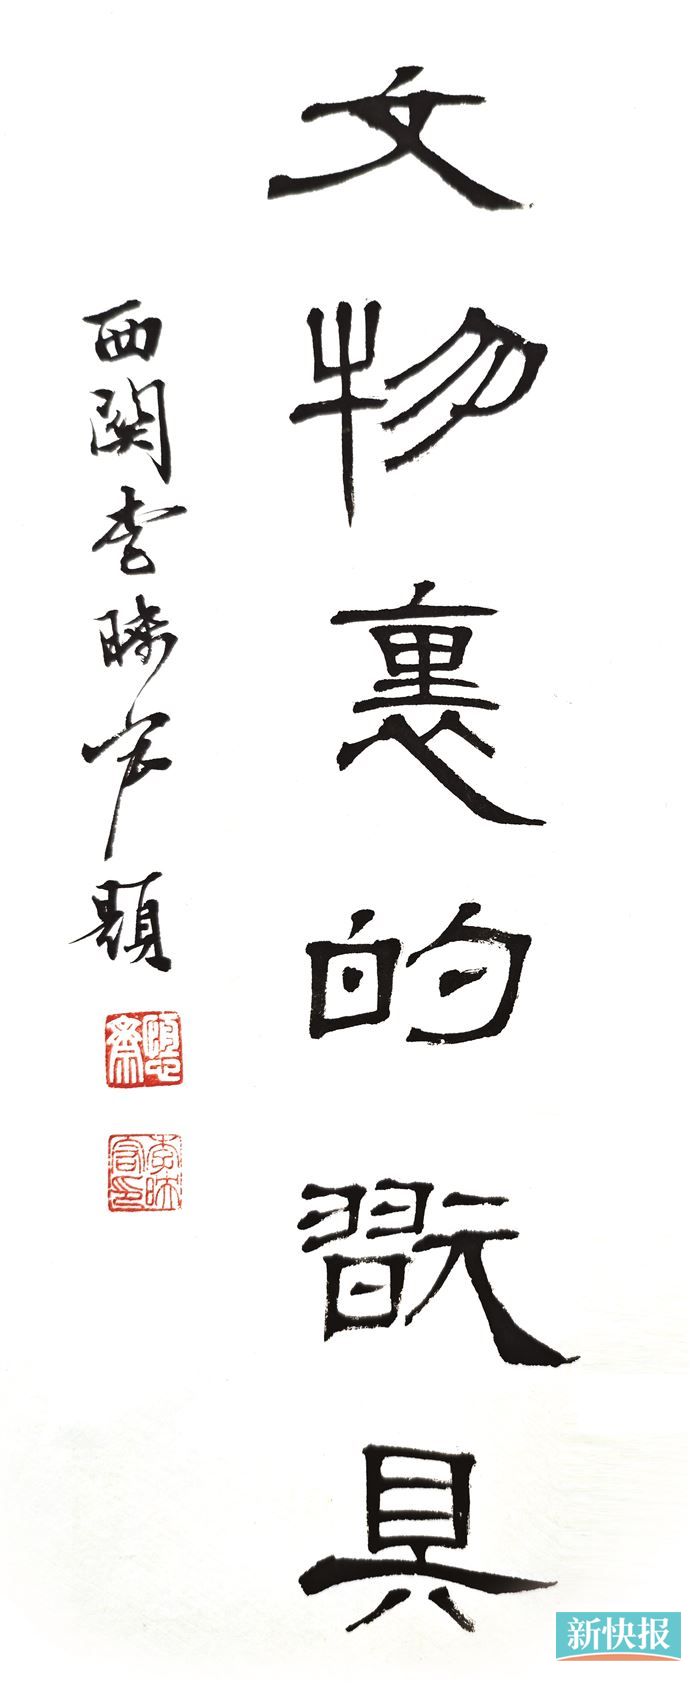 文物裏的翫具
西関李睎宏題
新快报